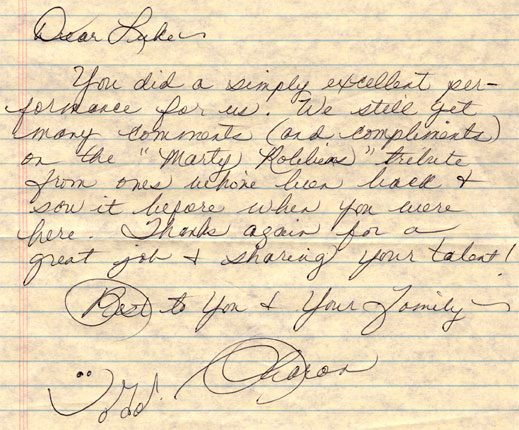 Dear Luke
You did a simply excellent per-
formance for us. We still get
many comments (and compliments)
on the "Marty Robbins" tribute
from ones who've been back &
saw it before when you were
here. Thanks again for a
great job & sharing your talent!
Best to You & Your Family
Sharon